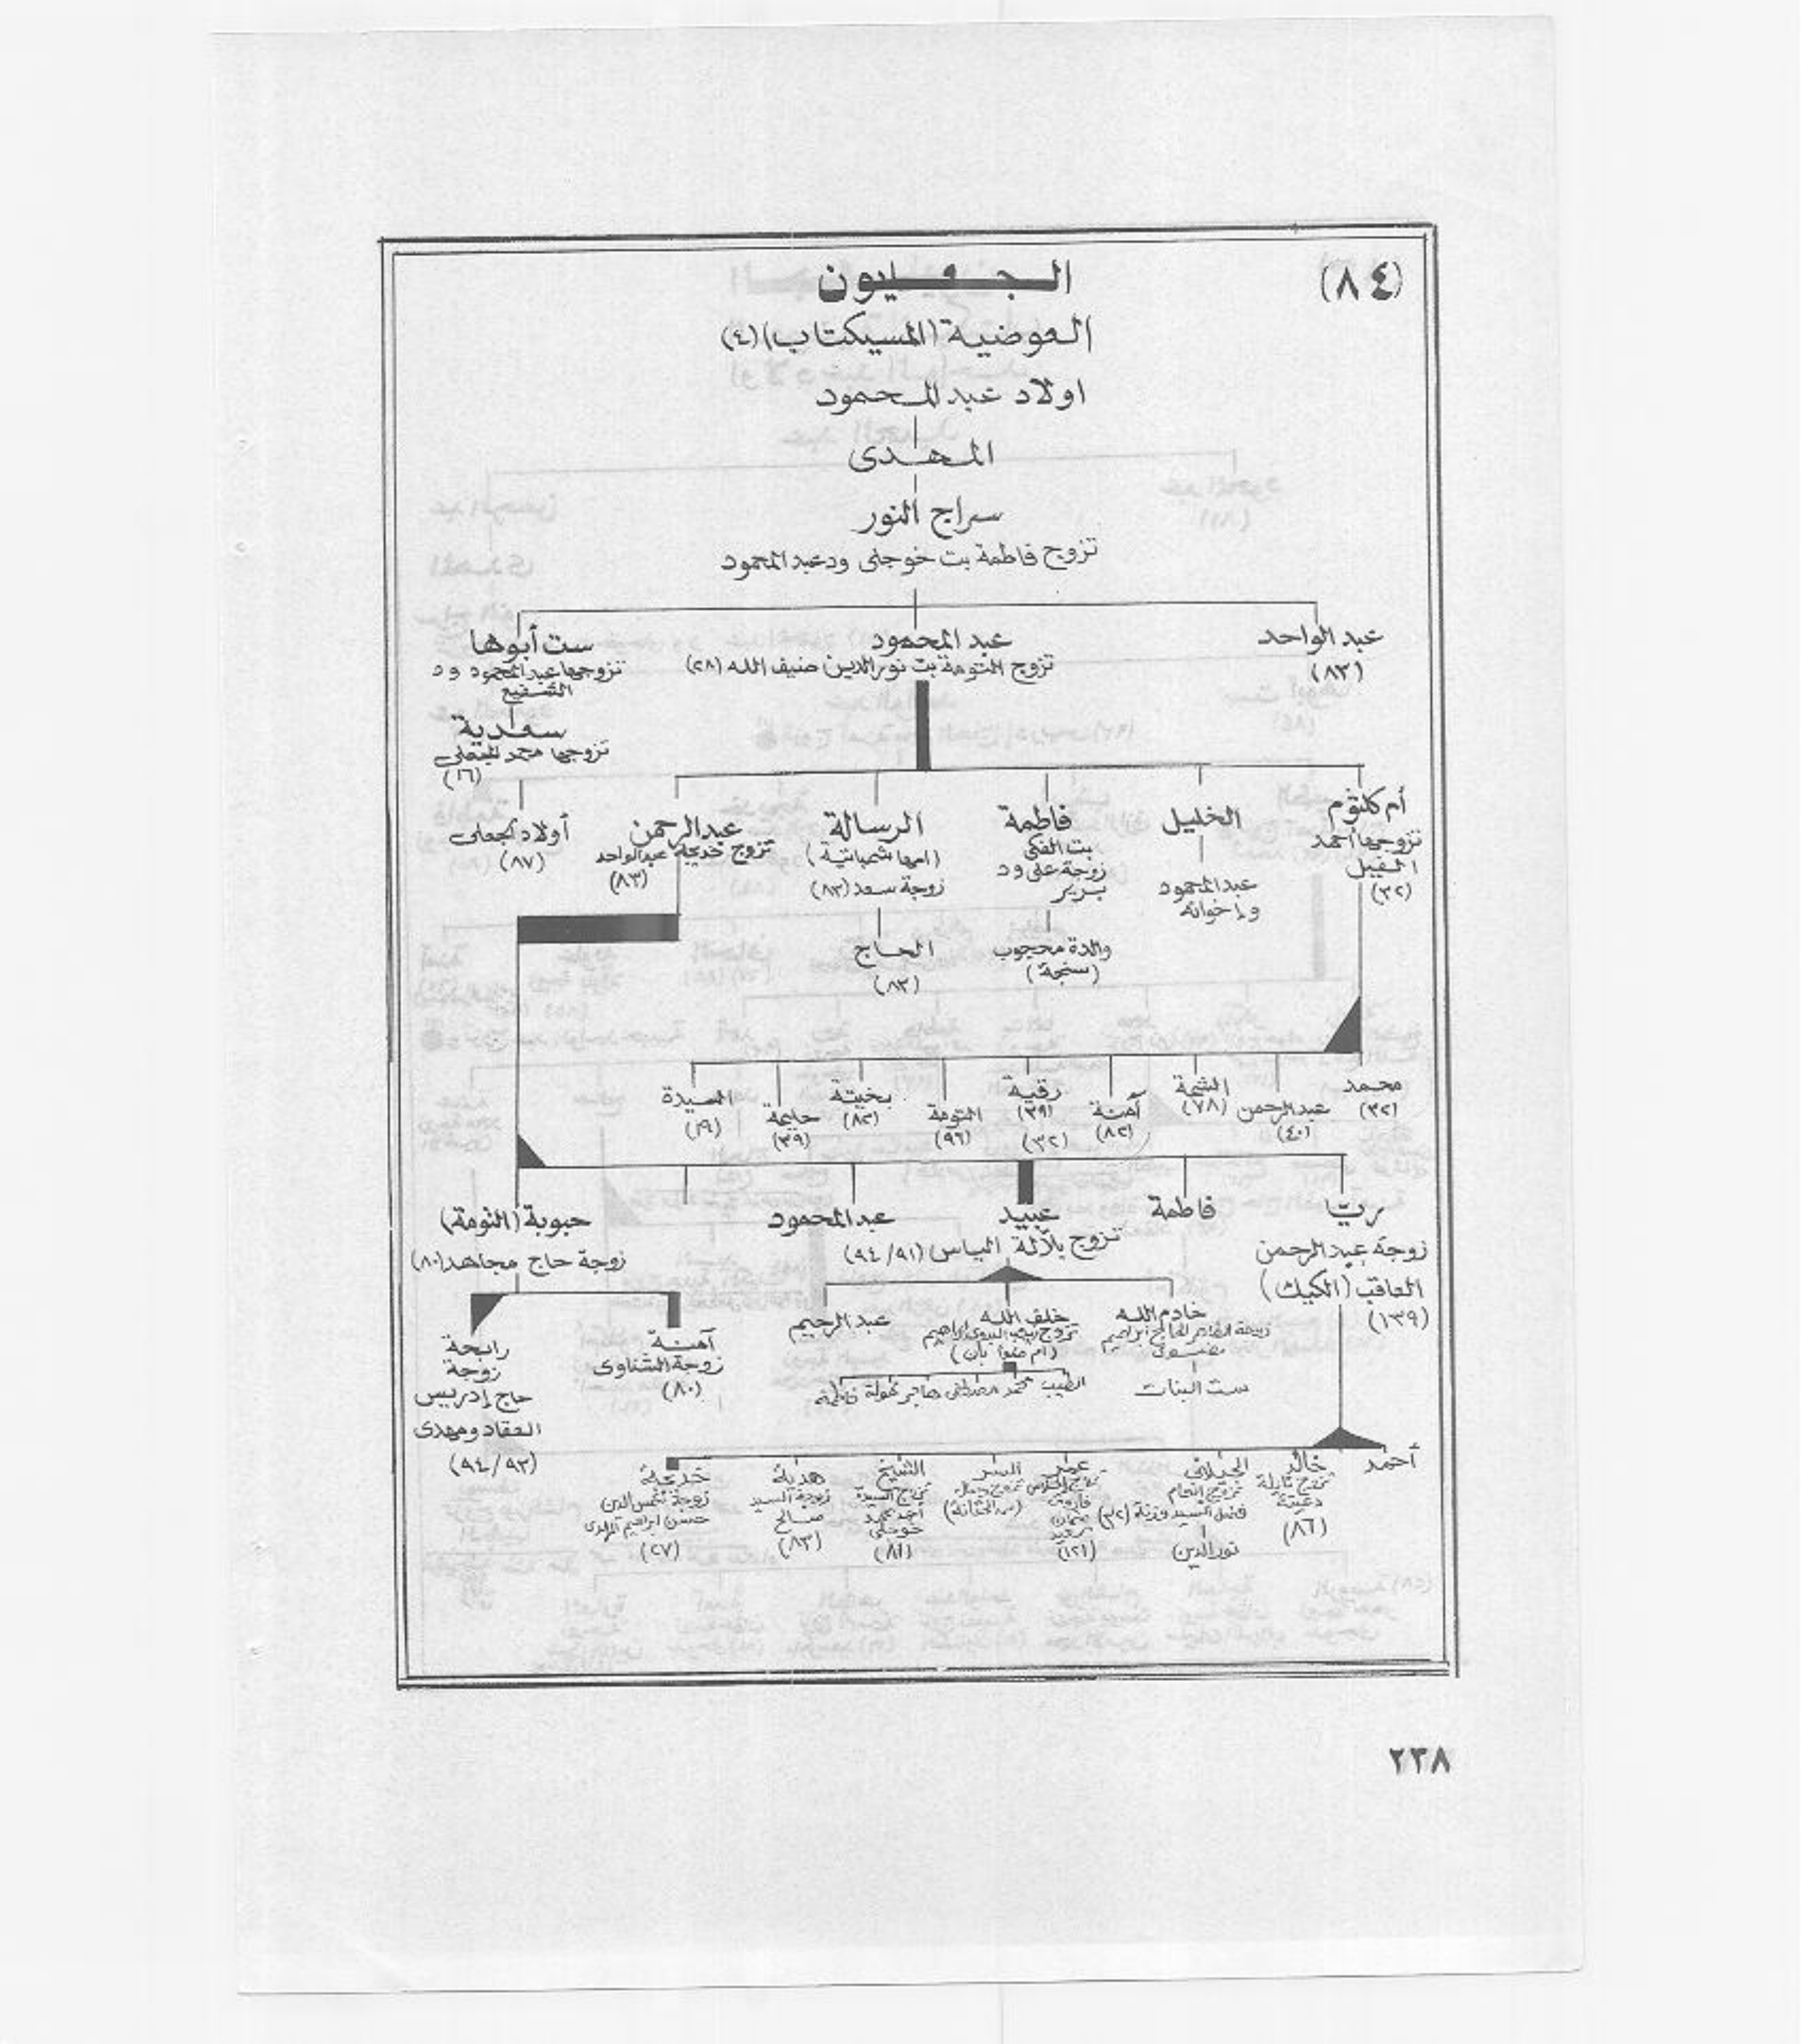 (٨٤)
الجعليون
العوضية (المسيكتاب) (٤)
اولاد عبد المحمود
المهدى
سراج النور
تزوج فاطمة بت خوجلى ود عبد المحمود
عبد الواحد
(٨٣)
عبد المحمود
تزوج التومة بت نور الدين ضيف الله (٢٨)
ست أبوها
تزوجها عبد المحمود ود
الشفيع
سعدية
تزوجها محمد الجعلى
(١٦)
أولاد الجعلى
(٨٧)
أم كلثوم
تزوجها أحمد
الفيل
(٣٢)
الخليل
عبد المحمود
وإخوانه
فاطمة
بت الفكى
زوجة على ود
برير
والدة محجوب
(سنجة)
الرسالة
(امها شمباتية)
زوجة سعد (٨٣)
الحاج
(٨٣)
عبد الرحمن
تزوج خديجة عبد الواحد
(٨٣)
محمد
(٣٢)
عبد الرحمن
(٤٠)
الشمة
(٧٨)
آمنة
(٨٢)
رقية
(٣٩)
(٣٢)
التومة
(٩٦)
بخيتة
(٨٢)
حليمة
(٣٩)
السيدة
(١٩)
ريّا
زوجة عبد الرحمن
العاقب (الكيك)
(١٣٩)
فاطمة
عبيد
تزوج بلالة الياس (٩٤/٩١)
عبد المحمود
حبوبة (التومة)
زوجة حاج مجاهد (٨٠)
خادم الله
ست البنات
خلف الله
(أم ضوا بان)
الطيب محمد مصطفى هاجر خولة فاطمة
عبد الرحيم
آمنة
زوجة الشناوى
(٨٠)
رابحة
زوجة
حاج إدريس
العقاد ومهدى
(٩٤/٩٣)
أحمد
خالد
تزوج نايلة
(٨٦)
الجيلانى
تزوج انعام
نور الدين
عمر
فاروق
عثمان
(١٢١)
السر
الشيخ
تزوج السيدة
أحمد محمد
خوجلى
(٨١)
هدية
زوجة السيد
صالح
(٨٣)
خديجة
زوجة شمس الدين
حسن ابراهيم المهدى
(٢٧)
٢٣٨